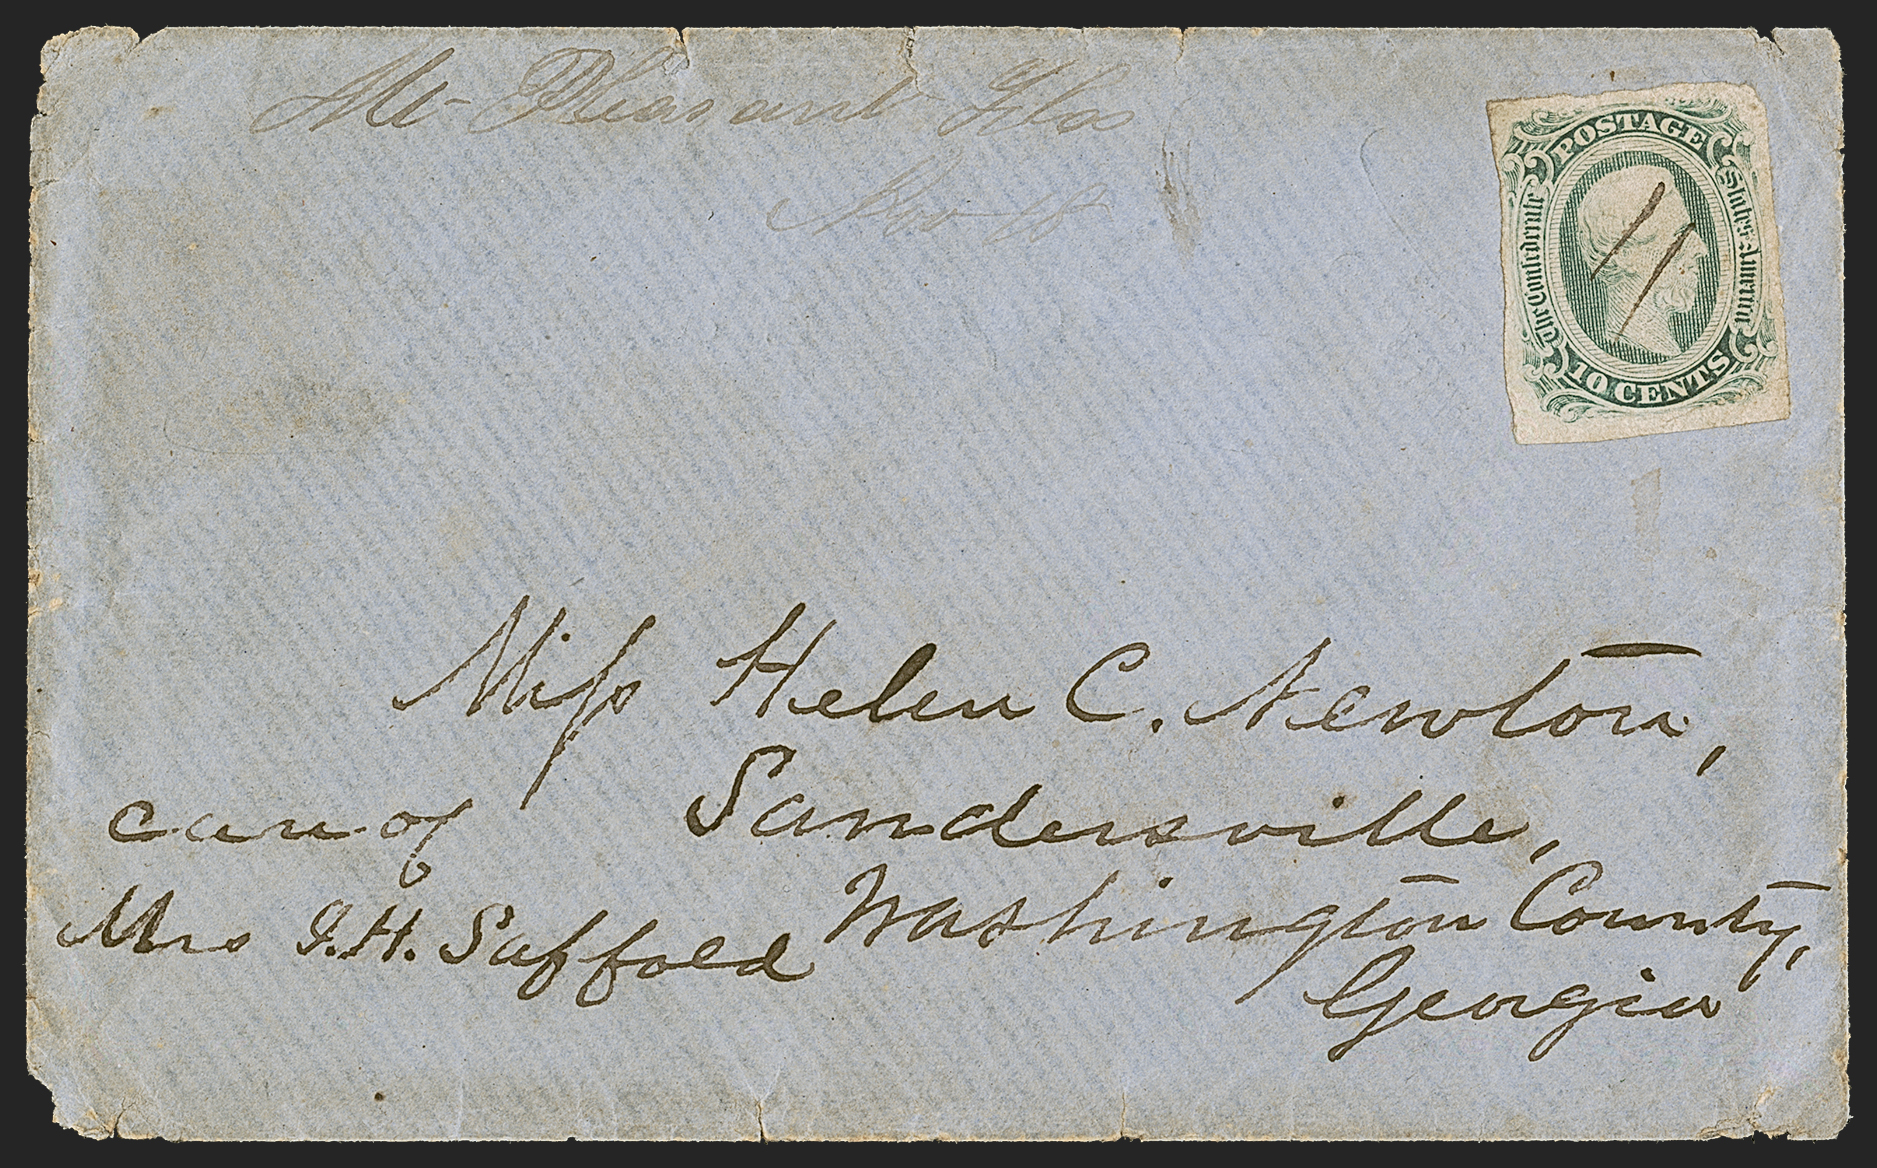 Mt Pleasant Fla
Nov 18
POSTAGE
The Confederate
States America
10 CENTS
Miss Helen C. Newton,
Sandersville,
Washington County,
Georgia
care of
Mrs I. H. Saffold